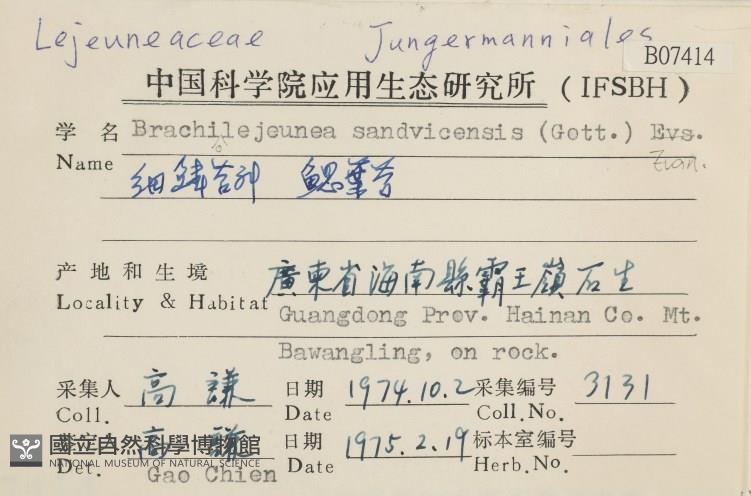 Lejeuneaceae Jungermanniales
B07414
中国科学院应用生态研究所 (IFSBH)
学名 Brachilejeunea sandvicensis (Gott.) Evs.
Name 细鳞苔科 鳃葉苔
产地和生境 廣東省海南縣霸王嶺石生
Locality & Habitat Guangdong Prov. Hainan Co. Mt.
Bawangling, on rock.
采集人 高謙 日期 1974.10.2 采集编号 3131
Coll. Date Coll.No.
高謙 日期 1975.2.19 标本室编号
Det. Gao Chien Date Herb.No.
國立自然科學博物館
NATIONAL MUSEUM OF NATURAL SCIENCE